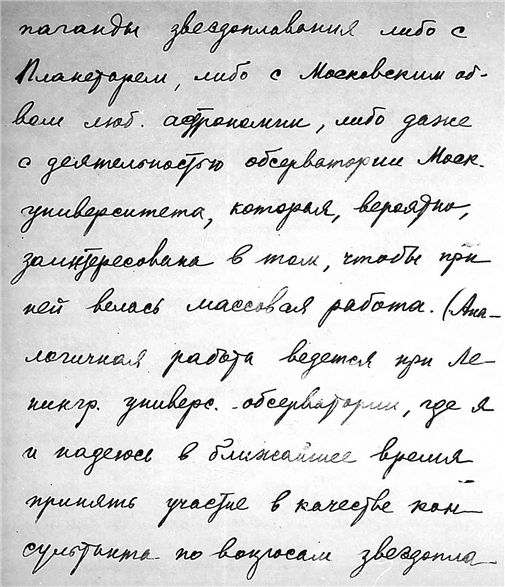 паганды звездоплавания либо с
Планетарем, либо с Московским об-
вом люб. астрономии, либо даже
с деятельностью обсерватории Моск.
университета, которая, вероятно,
заинтересована в том, чтобы при
ней велась массовая работа. (Ана-
логичная работа ведется при Ле-
нингр. универс. обсерватории, где я
и надеюсь в ближайшее время
принять участие в качестве кон-
сультанта по вопросам звездопла-